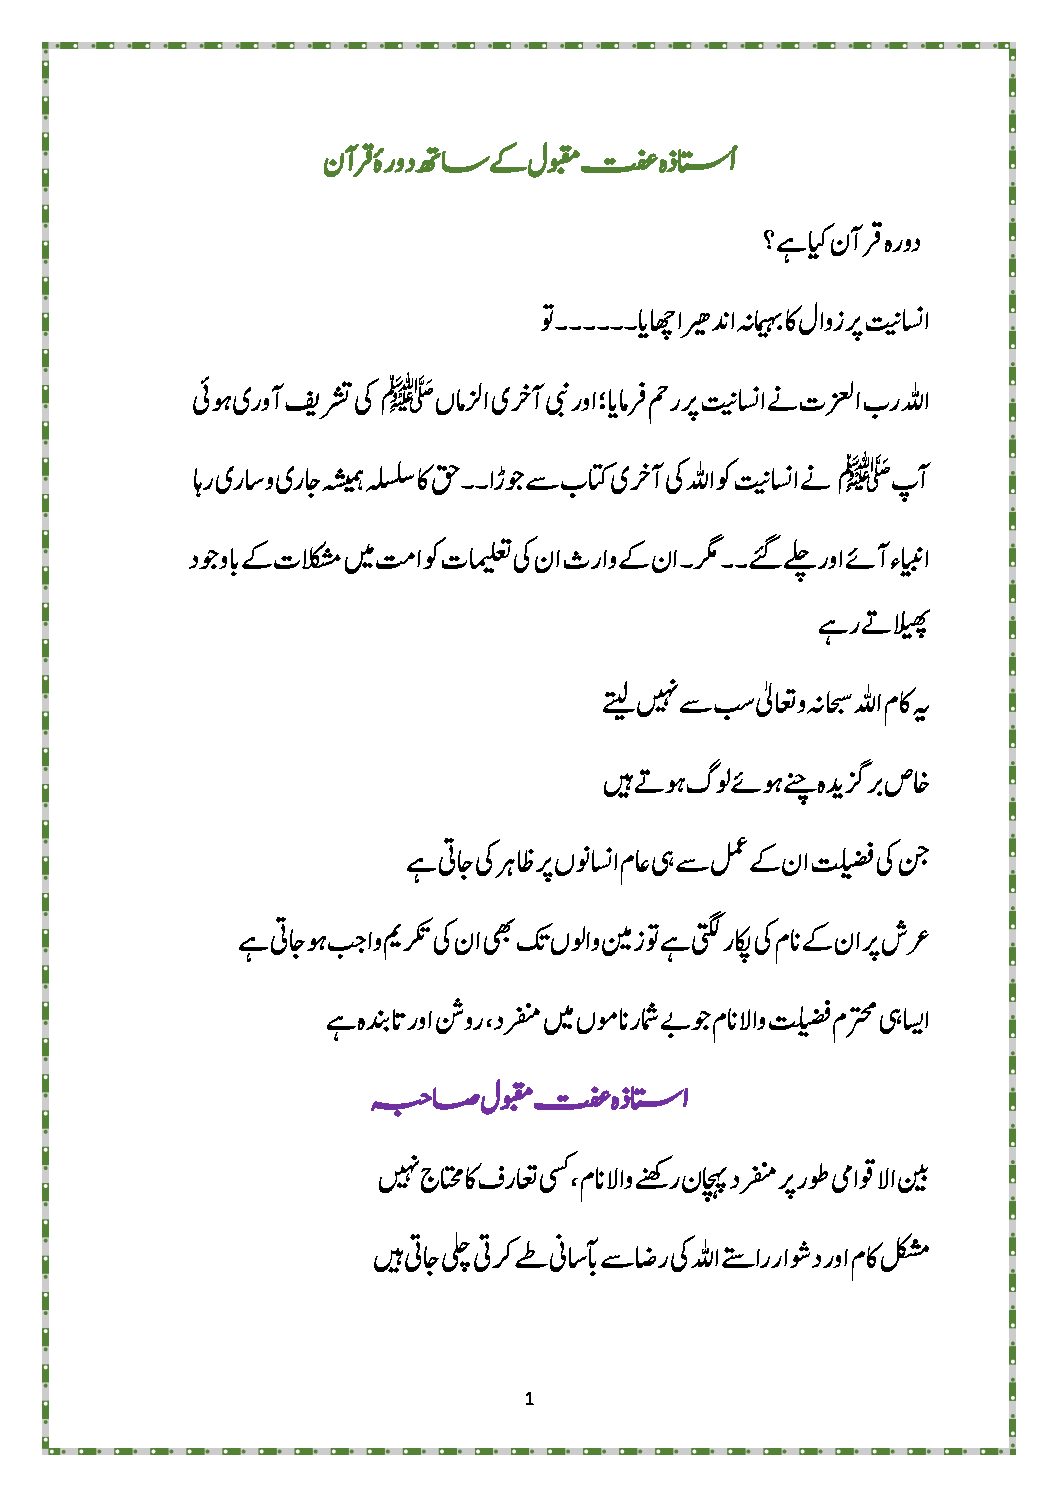 اُستاذہ عفت مقبول کے ساتھ دورۂ قرآن
دورہ قرآن کیا ہے ؟
انسانیت پر زوال کا بہیمانہ اندھیرا چھایا۔۔۔۔۔۔تو
اللہ رب العزت نے انسانیت پر رحم فرمایا؛ اور نبی آخری الزماں ﷺ کی تشریف آوری ہوئی
آپ ﷺ نے انسانیت کو اللہ کی آخری کتاب سے جوڑا۔۔حق کا سلسلہ ہمیشہ جاری و ساری رہا
انبیاء آئے اور چلے گئے۔۔مگر۔ان کے وارث ان کی تعلیمات کو امت میں مشکلات کے باوجود
پھیلاتے رہے
یہ کام اللہ سبحانہ و تعالیٰ سب سے نہیں لیتے
خاص برگزیدہ چنے ہوئے لوگ ہوتے ہیں
جن کی فضیلت ان کے عمل سے ہی عام انسانوں پر ظاہر کی جاتی ہے
عرش پر ان کے نام کی پکار لگتی ہے تو زمین والوں تک بھی ان کی تکریم واجب ہو جاتی ہے
ایسا ہی محترم فضیلت والا نام جو بے شمار ناموں میں منفرد، روشن اور تابندہ ہے
استاذہ عفت مقبول صاحبہ
بین الاقوامی طور پر منفرد پہچان رکھنے والا نام، کسی تعارف کا محتاج نہیں
مشکل کام اور دشوار راستے اللہ کی رضا سے بآسانی طے کرتی چلی جاتی ہیں
1